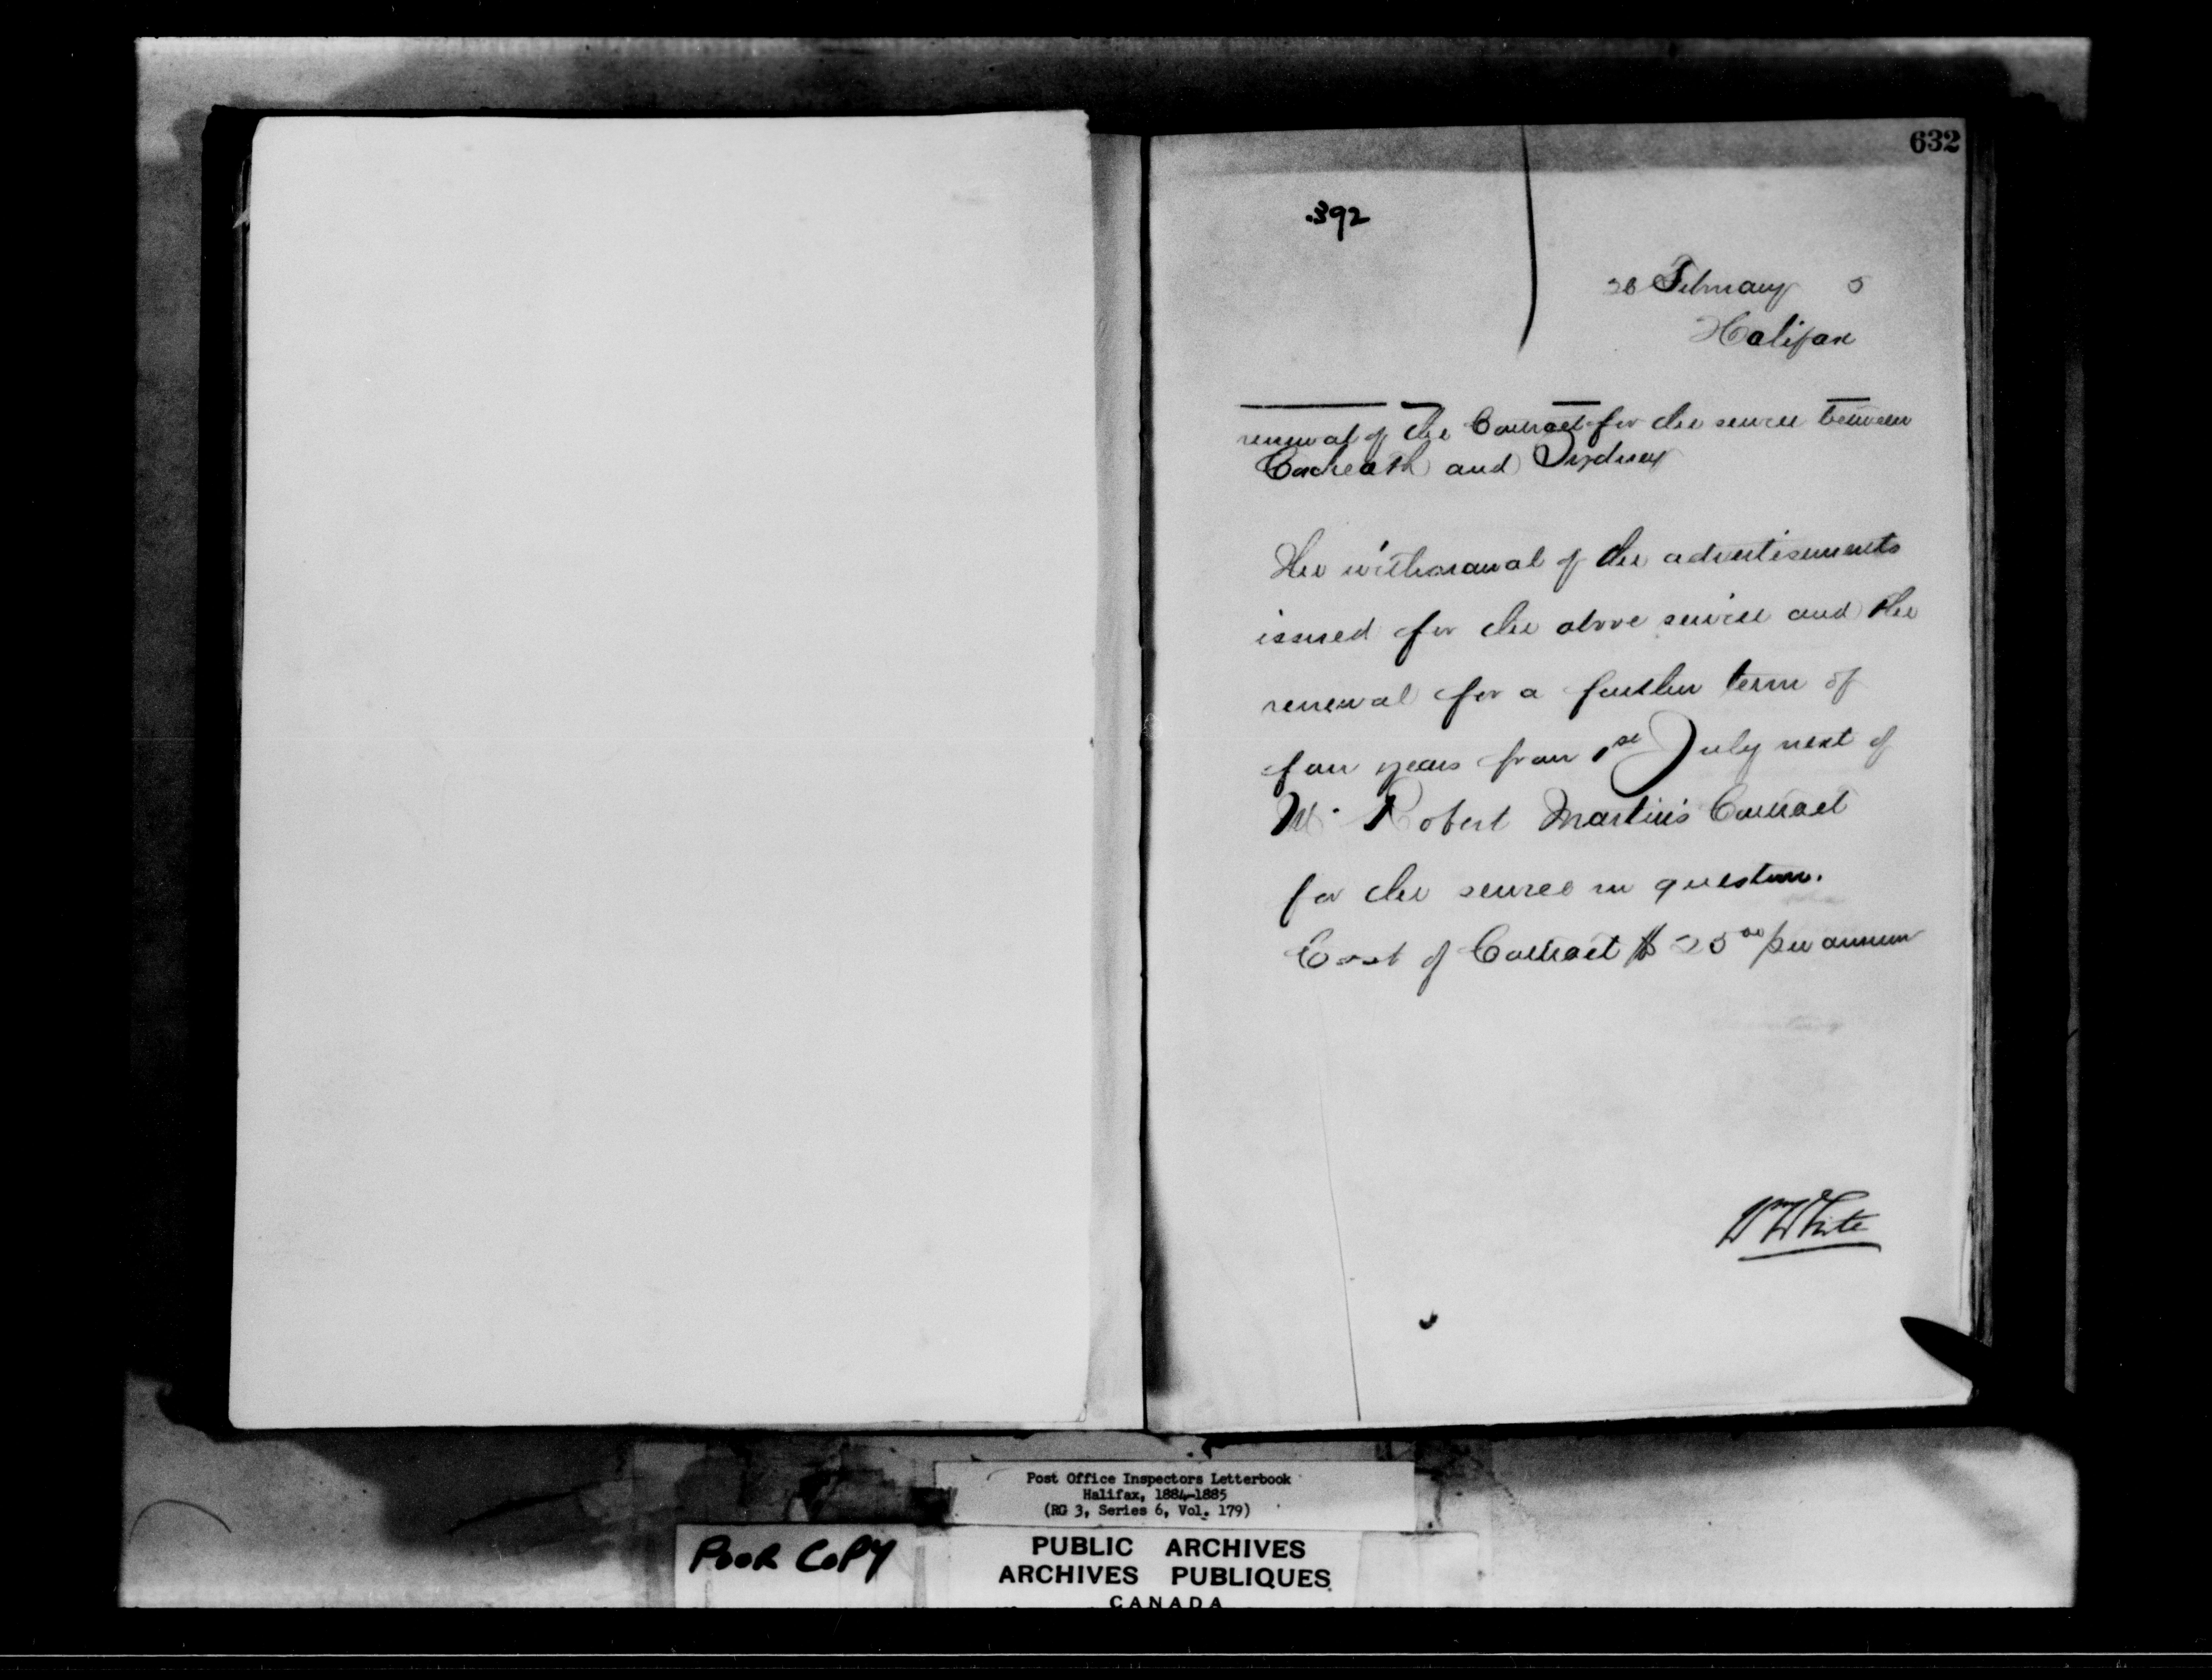 632
392
26 February 5
Halifax
renewal of the Contract for the service between
Coxheath and Sydney
The withdrawal of the advertisements
issued for the above service and the
renewal for a further term of
four years from 1st July next of
Mr. Robert Martin's Contract
for the service in question.
Cost of Contract $ 25 00 per annum
Wm White
Post Office Inspectors Letterbook
Halifax, 1884-1885
(RG 3, Series 6, Vol. 179)
POOR COPY
PUBLIC ARCHIVES
ARCHIVES PUBLIQUES
CANADA